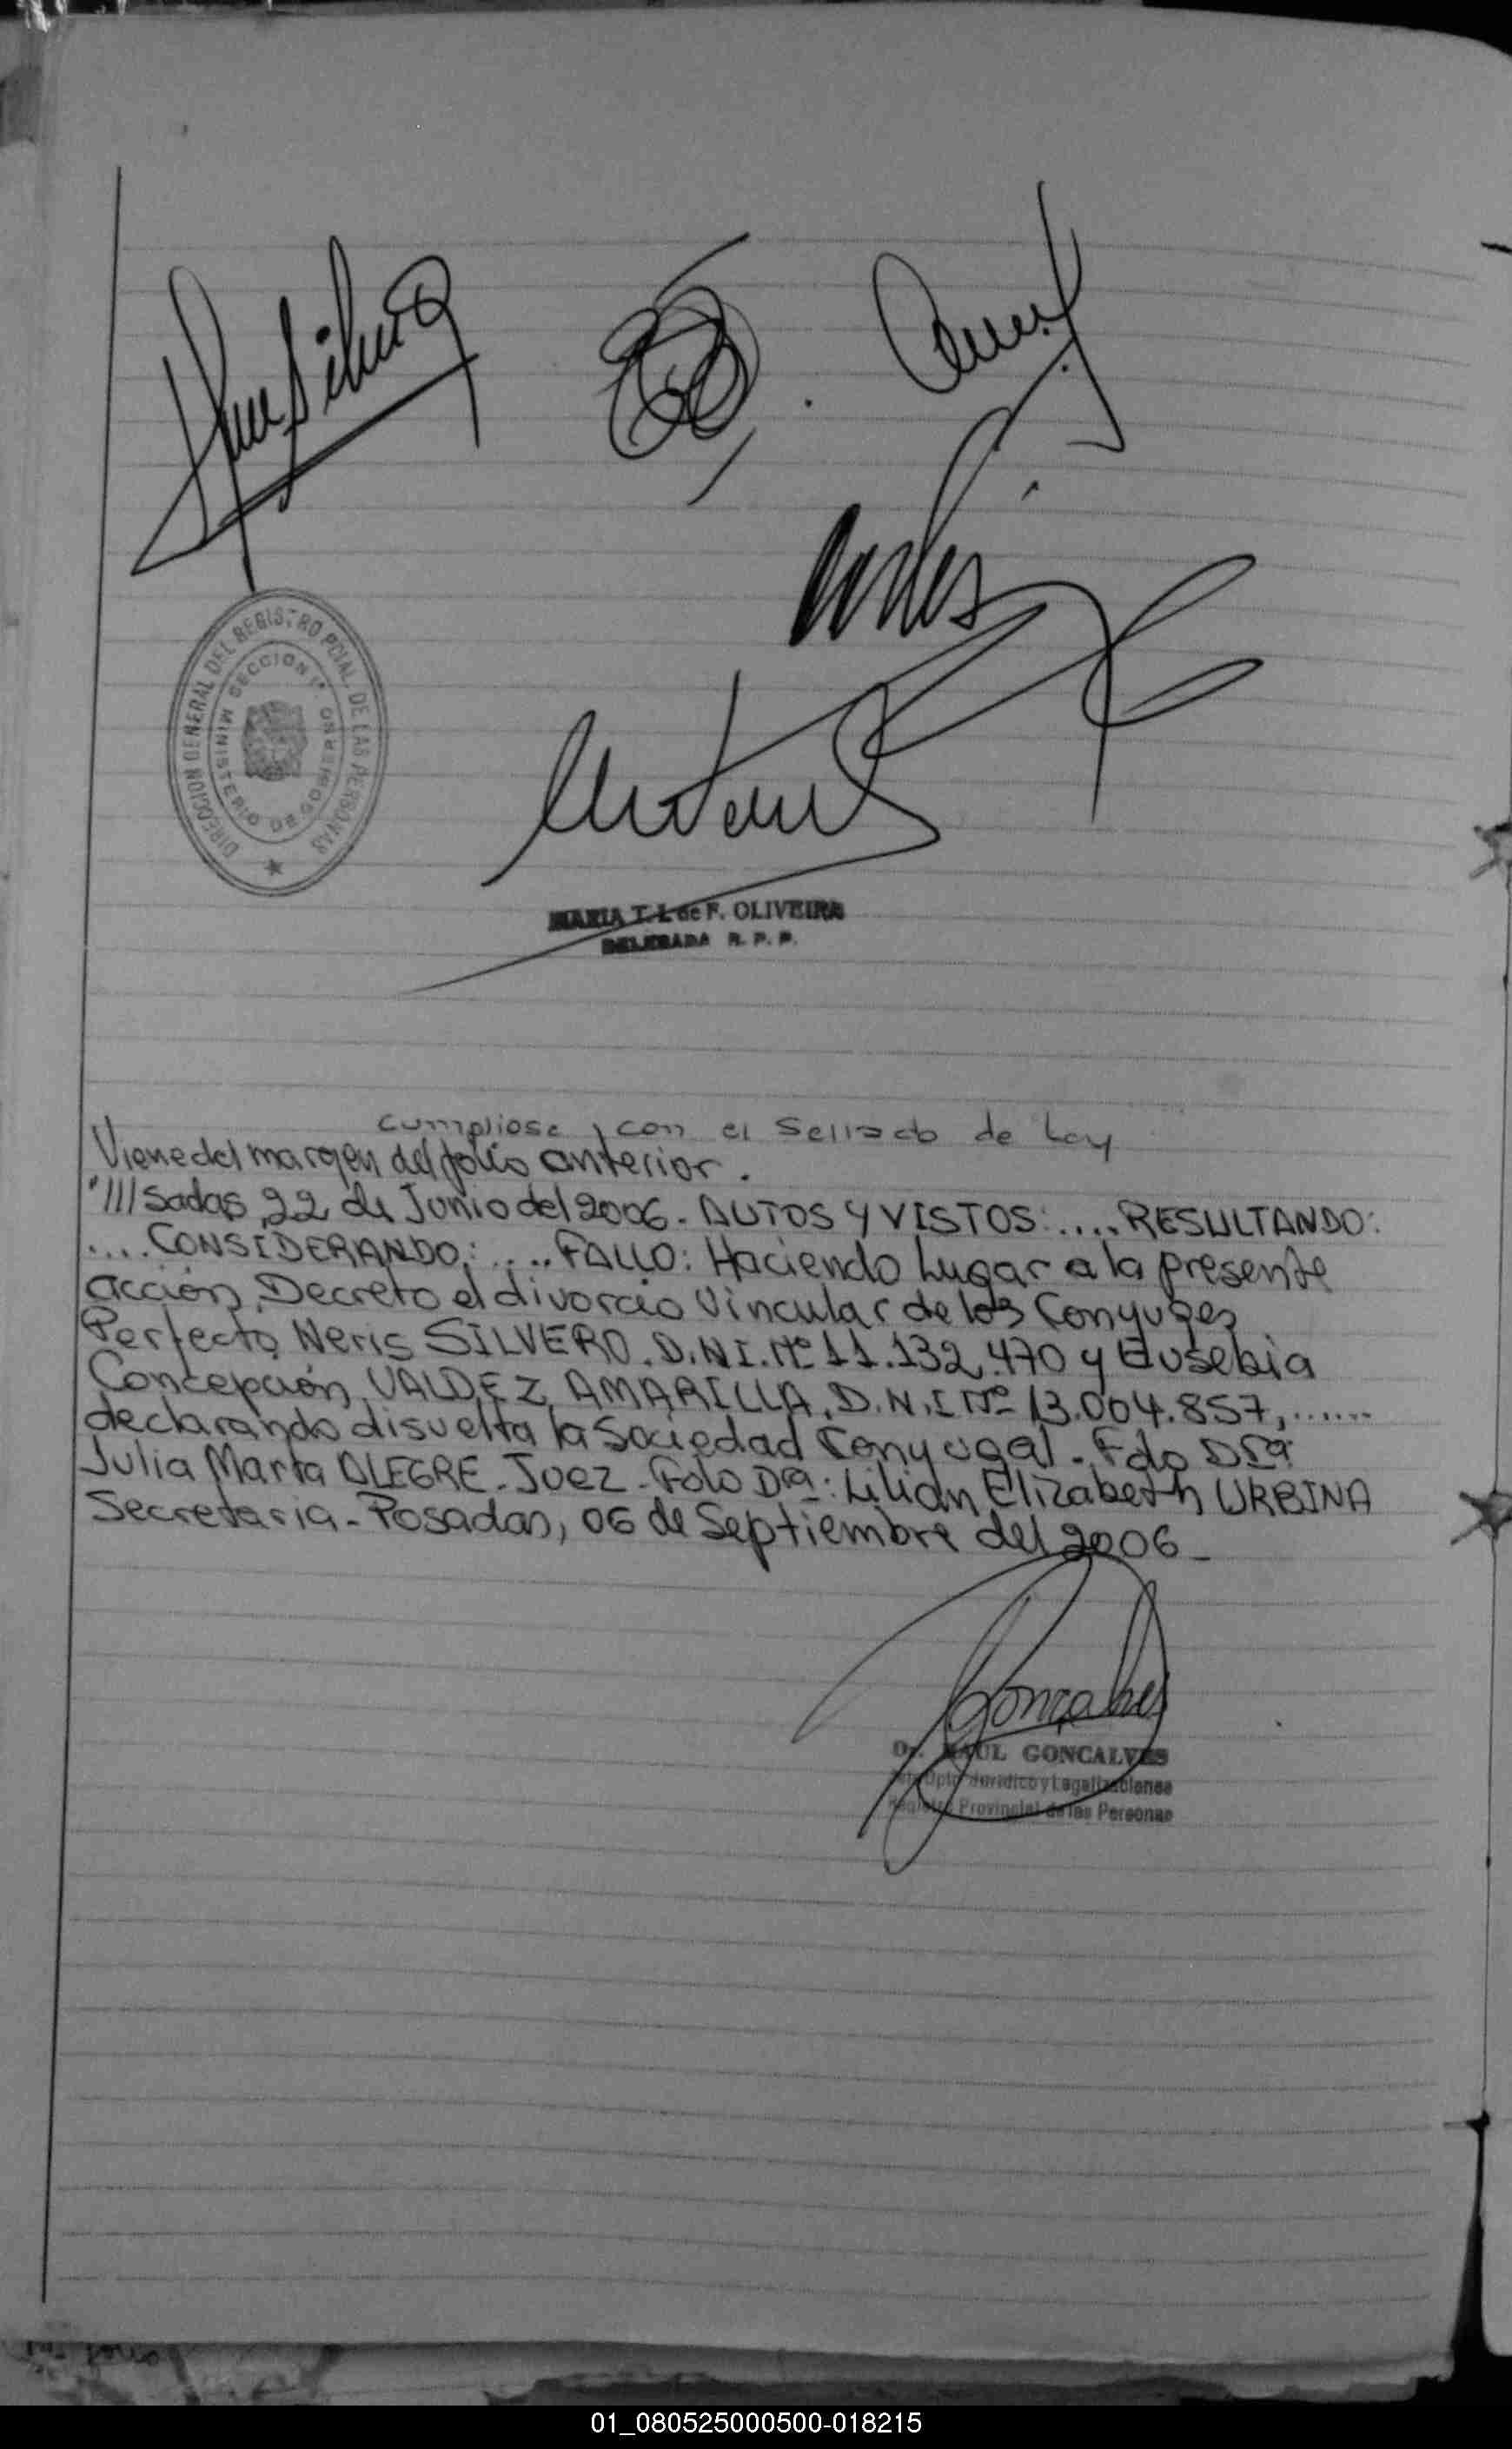 DIRECCION GENERAL DEL REGISTRO PCIAL. DE LAS PERSONAS
SECCION 1ª
MINISTERIO DE GOBIERNO
MARIA T. L de F. OLIVEIRA
DELEGADA R. P. P.
Cumpliose con el Sellado de Ley
Viene del margen del folio anterior.
"///sadas, 22 de Junio del 2006.- AUTOS Y VISTOS: .... RESULTANDO:
.... CONSIDERANDO: .... FALLO: Haciendo Lugar a la presente
acción, Decreto el divorcio Vincular de los Conyuges
Perfecto Neris SILVERO, D.N.I. Nº 11.132.470 y Eusebia
Concepción VALDEZ AMARILLA, D.N.I Nº 13.004.857, ......
declarando disuelta la Sociedad Conyugal.- Fdo Drª
Julia Marta ALEGRE - Juez - Fdo Drª: Lilian Elizabeth URBINA
Secretaria - Posadas, 06 de Septiembre del 2006 -
Goncalves
Dr. RAUL GONCALVES
Dpto. Jurídico y Legalizaciones
Registro Provincial de las Personas
01_080525000500-018215